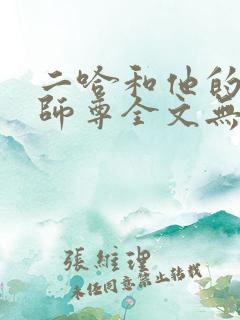 二哈和他的
師尊全文無
張維理
未经同意禁止转载